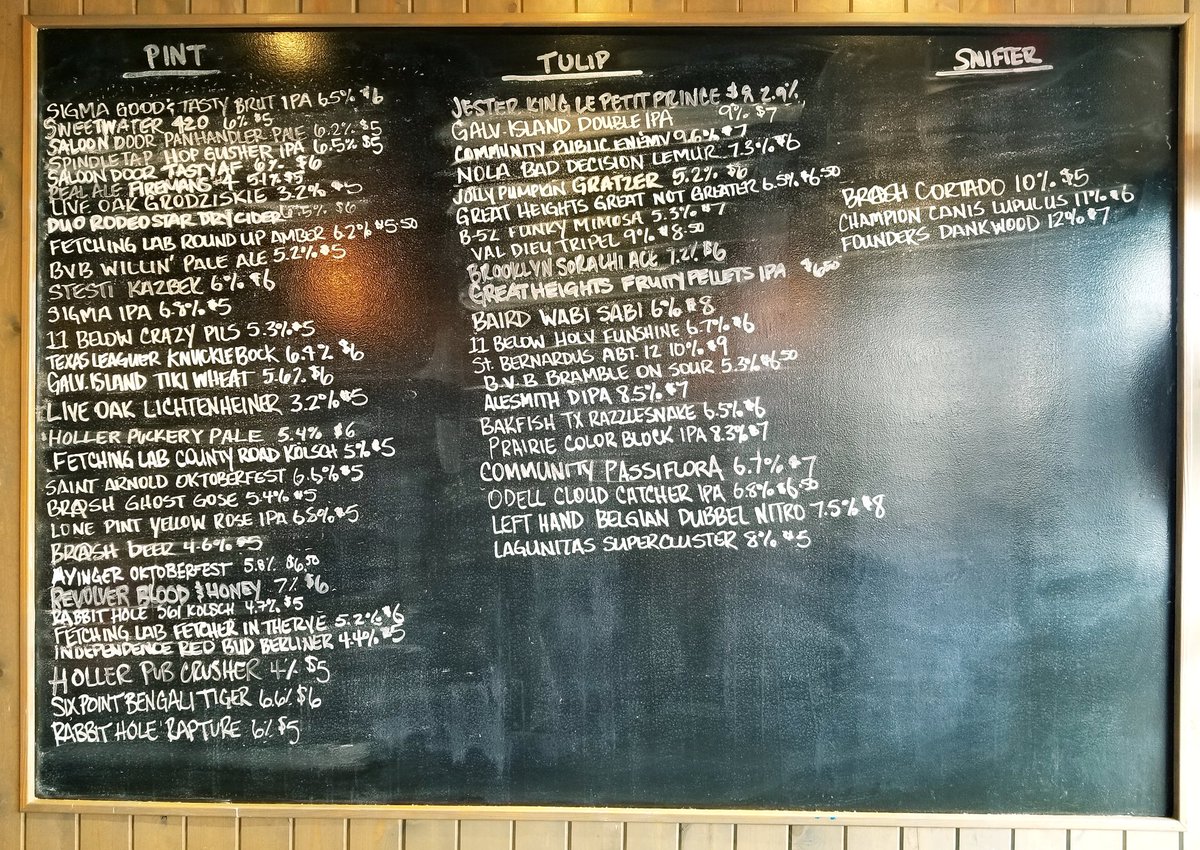 PINT
SIGMA GOOD & TASTY BRUT IPA 6.5% $6
SWEETWATER 420 6% $5
SALOON DOOR PANHANDLER PALE 6.2% $5
SPINDLETAP HOP GUSHER IPA 6.5% $5
SALOON DOOR TASTY AF 6% $6
REAL ALE FIREMANS 4 5.1% $5
LIVE OAK GRODZISKIE 3.2% $5
DUO RODEO STAR DRY CIDER 6.5% $6
FETCHING LAB ROUND UP AMBER 6.2% $5.50
BVB WILLIN' PALE ALE 5.2% $5
STESTI KAZBEK 6% $6
SIGMA IPA 6.8% $5
11 BELOW CRAZY PILS 5.3% $5
TEXAS LEAGUER KNUCKLEBOCK 6.9% $6
GALV. ISLAND TIKI WHEAT 5.6% $6
LIVE OAK LICHTENHEINER 3.2% $5
HOLLER PUCKERY PALE 5.4% $6
FETCHING LAB COUNTY ROAD KOLSCH 5% $5
SAINT ARNOLD OKTOBERFEST 6.6% $5
BR@SH GHOST GOSE 5.4% $5
LONE PINT YELLOW ROSE IPA 6.8% $5
BR@SH bEER 4.6% $5
AYINGER OKTOBERFEST 5.8% $6.50
REVOLVER BLOOD & HONEY 7% $6
RABBIT HOLE 561 KOLSCH 4.7% $5
FETCHING LAB FETCHER IN THE RYE 5.2% $6
INDEPENDENCE RED BUD BERLINER 4.4% $5
HOLLER PUB CRUSHER 4% $5
SIXPOINT BENGALI TIGER 6.6% $6
RABBIT HOLE RAPTURE 6% $5
TULIP
JESTER KING LE PETIT PRINCE $8 2.9%
GALV. ISLAND DOUBLE IPA 9% $7
COMMUNITY PUBLIC ENEMY 9.6% $7
NOLA BAD DECISION LEMUR 7.3% $6
JOLLY PUMPKIN GRATZER 5.2% $6
GREAT HEIGHTS GREAT NOT GREATER 6.5% $6.50
B-52 FUNKY MIMOSA 5.3% $7
VAL DIEU TRIPEL 9% $8.50
BROOKLYN SORACHI ACE 7.2% $6
GREAT HEIGHTS FRUITY PELLETS IPA $6.50
BAIRD WABI SABI 6% $8
11 BELOW HOLY FUNSHINE 6.7% $6
ST. BERNARDUS ABT. 12 10% $9
B.V.B BRAMBLE ON SOUR 5.3% $6.50
ALESMITH DIPA 8.5% $7
BAKFISH TX RAZZLESNAKE 6.5% $6
PRAIRIE COLOR BLOCK IPA 8.3% $7
COMMUNITY PASSIFLORA 6.7% $7
ODELL CLOUD CATCHER IPA 6.8% $6.50
LEFT HAND BELGIAN DUBBEL NITRO 7.5% $8
LAGUNITAS SUPERCLUSTER 8% $5
SNIFTER
BR@SH CORTADO 10% $5
CHAMPION CANIS LUPULUS 11% $6
FOUNDERS DANKWOOD 12% $7